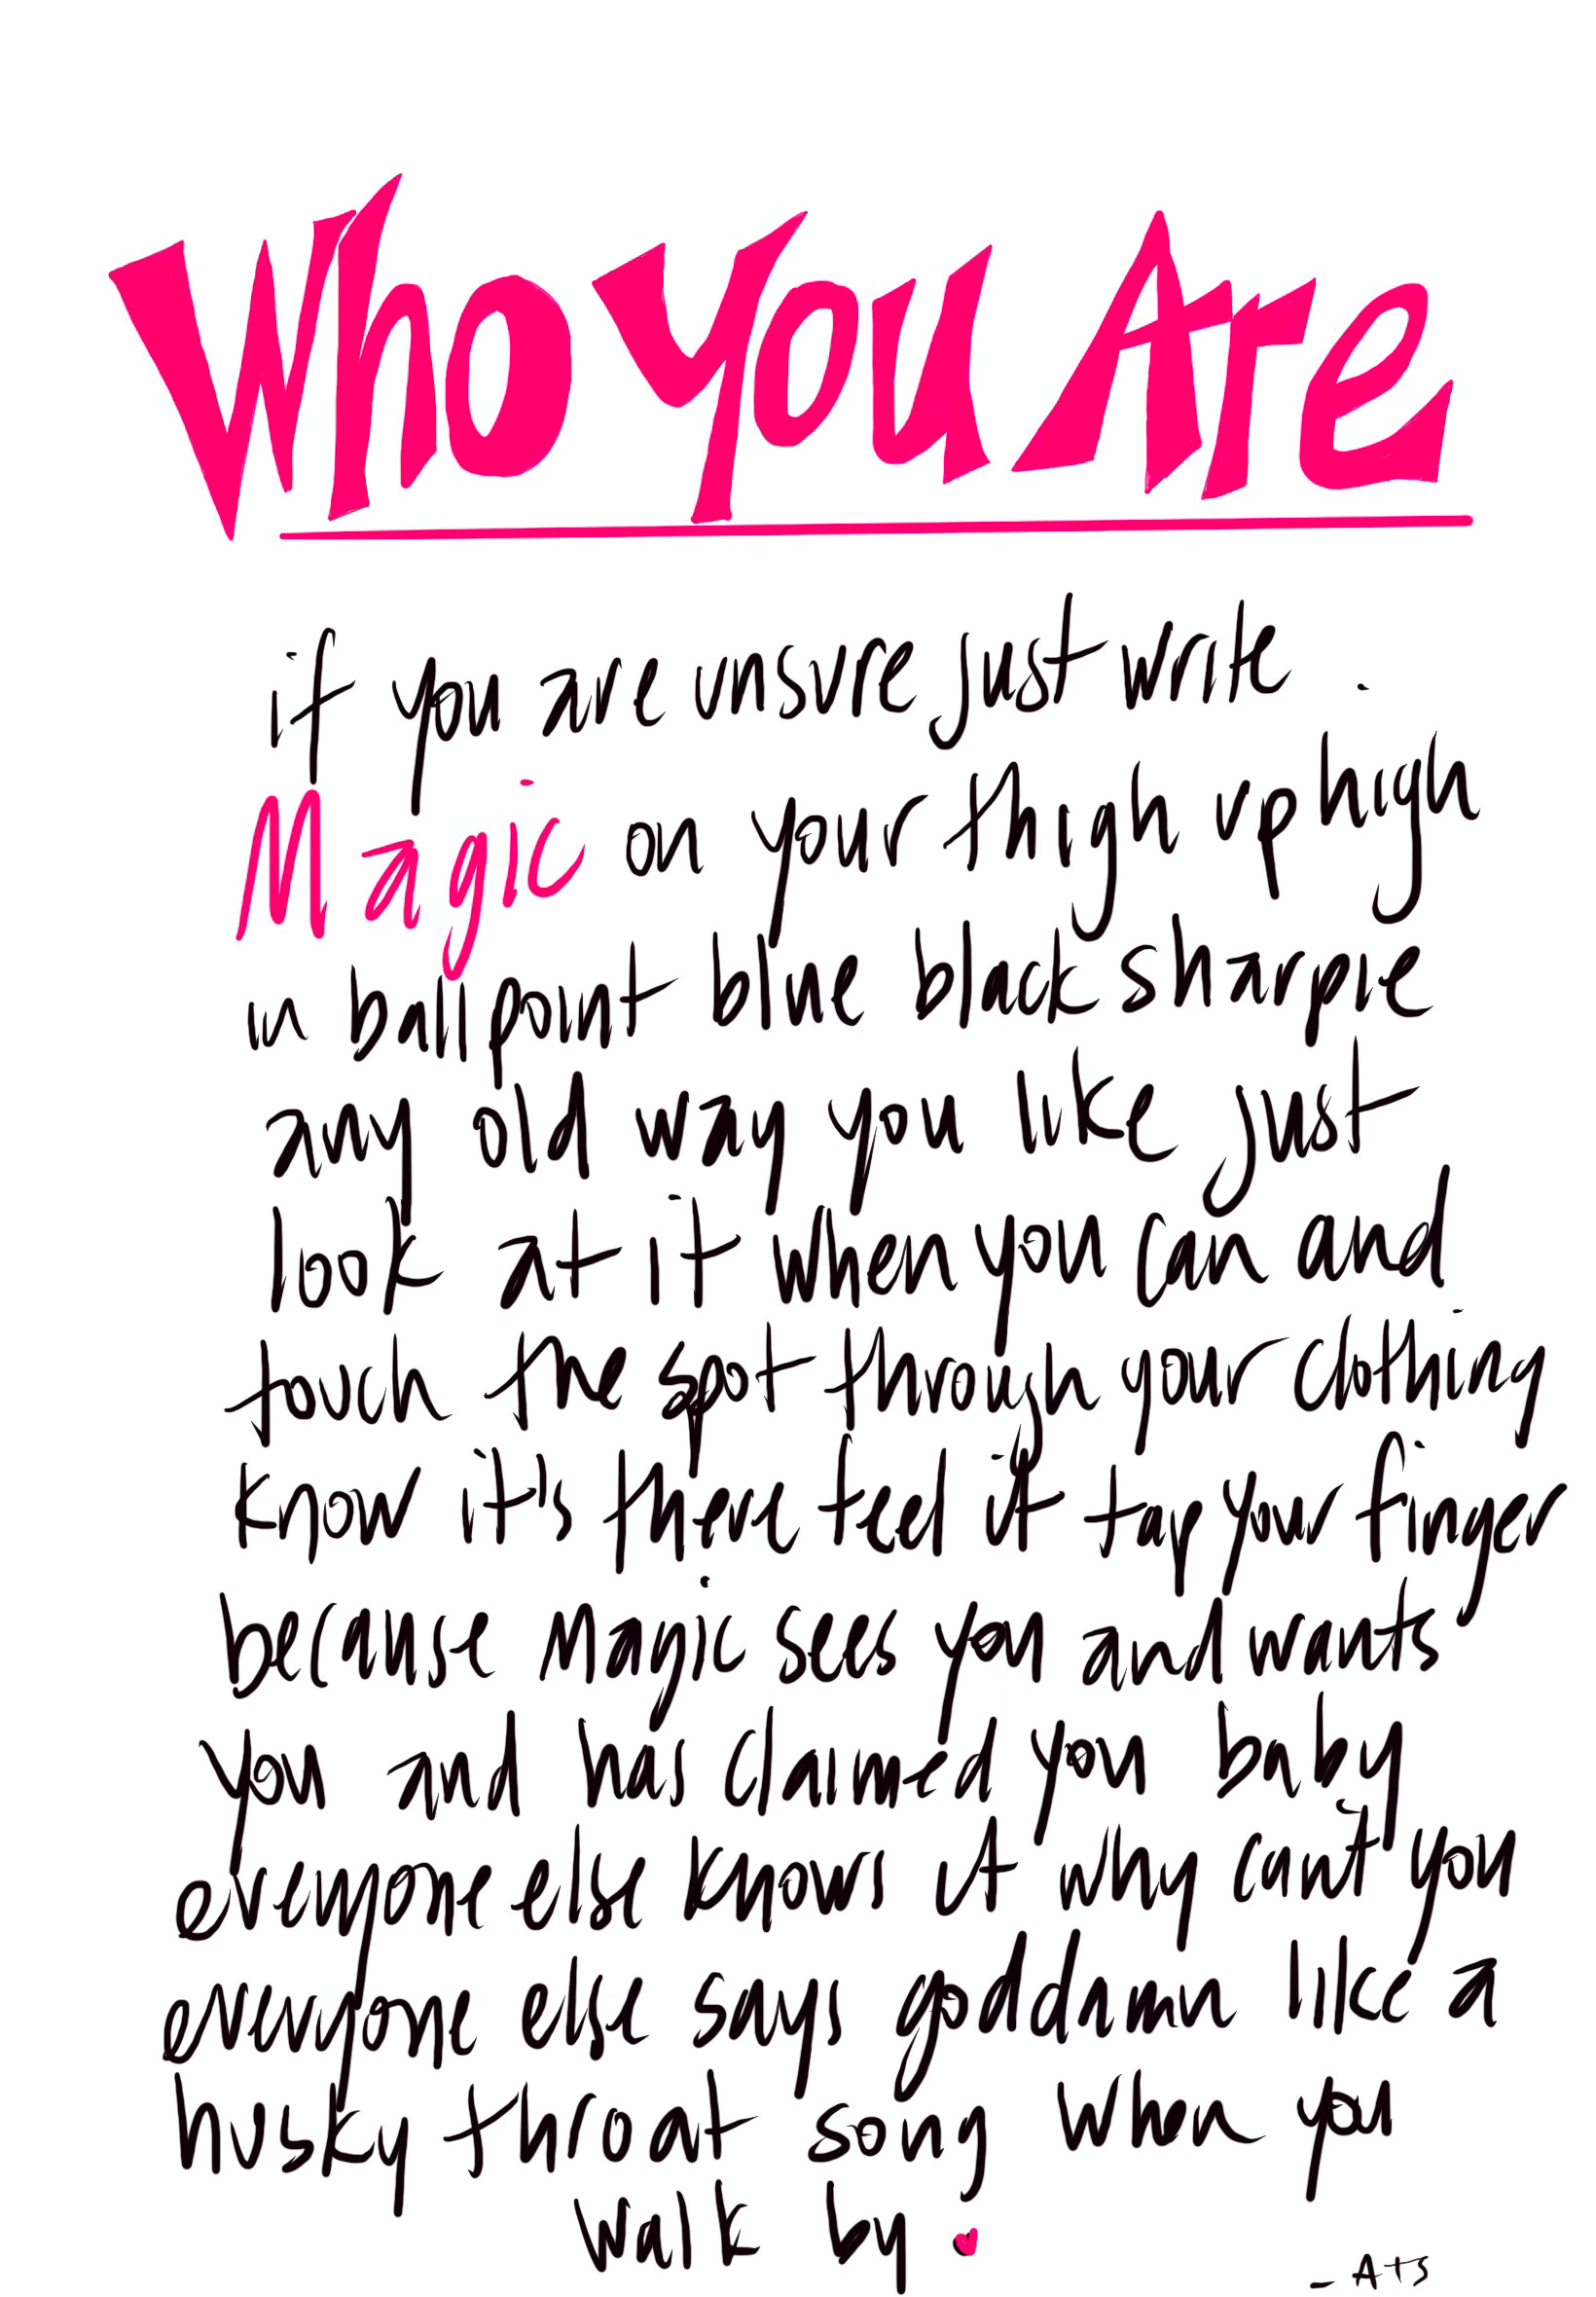 Who You Are
if you are unsure just write
Magic on your thigh up high
in ballpoint blue black sharpie
any old way you like just
look at it when you can and
touch the spot through your clothing
know it's there feel it tap your finger
because Magic sees you and wants
you and has claimed you baby
everyone else knows it why can't you
everyone else says goddamn like a
husky throat song when you
walk by
- ATS